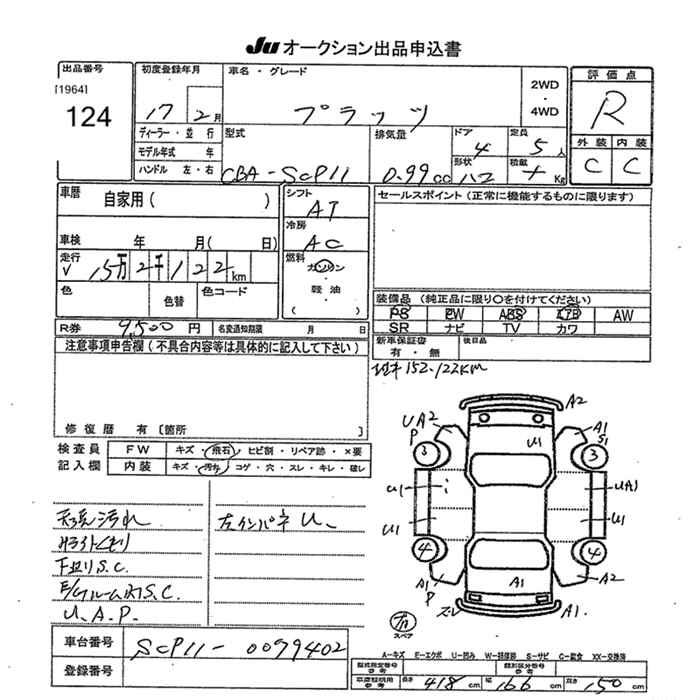 JU オークション出品申込書
出品番号
[1964]
124
初度登録年月
17 2月
車名・グレード
プラッツ
2WD
・
4WD
評価点
R
外装 内装
C C
ディーラー・並行
モデル年式 年
ハンドル 左・右
型式
CBA-SCP11
排気量
0.99cc
ドア 4
形状 ハコ
定員 5人
積載 Kg
車歴 自家用( )
車検 年 月( 日)
走行
15万2千122km
色 色替 色コード
シフト
AT
冷房
AC
燃料
ガソリン
・
軽油
・
( )
セールスポイント(正常に機能するものに限ります)
装備品(純正品に限り○を付けてください)
PS PW ABS エアB AW
SR ナビ TV カワ
R券 9,500円 名変通知期限 月 日
新車保証書
有・無
後日品
152,122KM
注意事項申告欄(不具合内容等は具体的に記入して下さい)
修復歴 有〔箇所 〕
検査員
記入欄
FW キズ・飛石・ヒビ割・リペア跡・×要
内装 キズ・汚れ・コゲ・穴・スレ・キレ・破レ
天張汚れ
S.C.
S.C.
U.A.P.
左インパネU、
UA2
P
A2
A1
S1
U1
3
3
U1
UA1
U1
U1
4
4
A1
P
A1
A2
スレ
A1
スペア
車台番号 SCP11-0079402
登録番号
A-キズ E-エクボ U-凹み W-補修跡 S-サビ C-腐食 XX-交換済
型式指定番号
参考
類別区分番号
参考
車検証明用
参考
長さ 418cm 幅 166cm 高さ 150cm